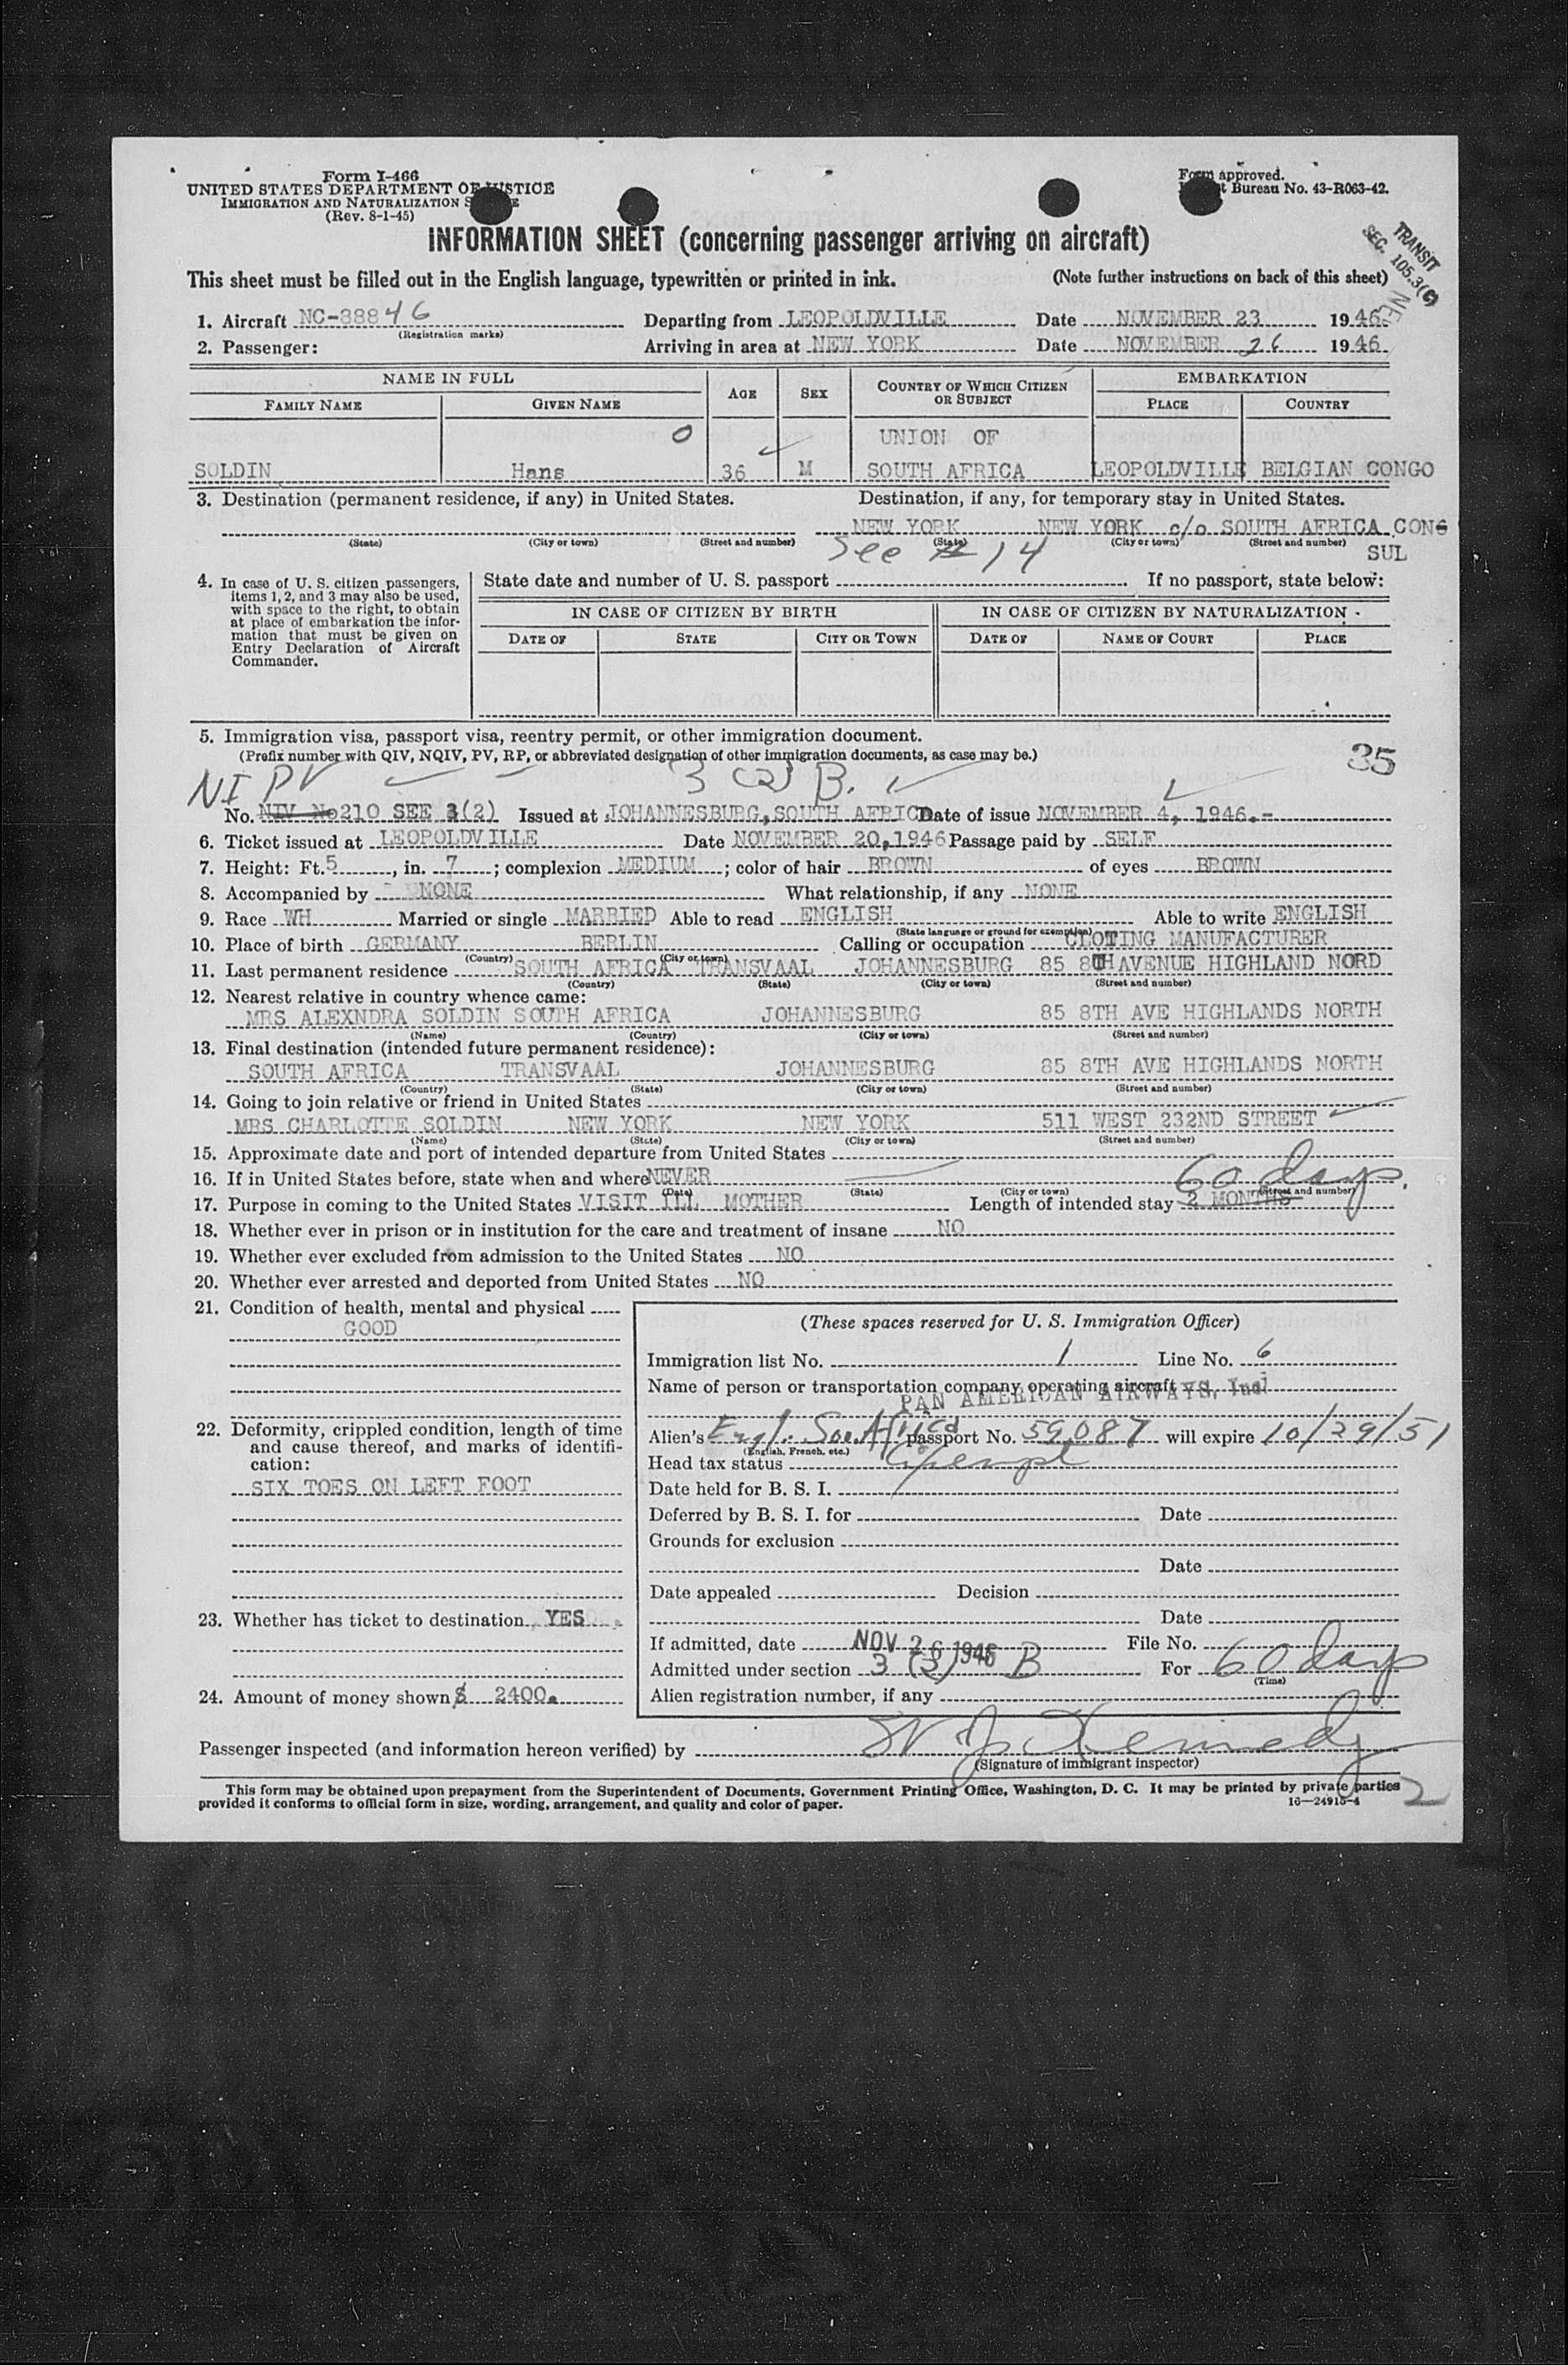 Form I-466
UNITED STATES DEPARTMENT OF JUSTICE
IMMIGRATION AND NATURALIZATION S
(Rev. 8-1-45)
Form approved.
t Bureau No. 43-R063-42.
TRANSIT
SEC. 105.3(C)
INFORMATION SHEET (concerning passenger arriving on aircraft)
This sheet must be filled out in the English language, typewritten or printed in ink. (Note further instructions on back of this sheet)
1. Aircraft NC-88846 Departing from LEOPOLDVILLE Date NOVEMBER 23 1946.
(Registration marks)
2. Passenger: Arriving in area at NEW YORK Date NOVEMBER 26 1946.
NAME IN FULL AGE SEX COUNTRY OF WHICH CITIZEN OR SUBJECT EMBARKATION
FAMILY NAME GIVEN NAME PLACE COUNTRY
0 UNION OF
SOLDIN Hans 36 M SOUTH AFRICA LEOPOLDVILLE BELGIAN CONGO
3. Destination (permanent residence, if any) in United States. Destination, if any, for temporary stay in United States.
NEW YORK NEW YORK c/o SOUTH AFRICA CONS
(State) (City or town) (Street and number) (State) (City or town) (Street and number)
See # 14 SUL
4. In case of U. S. citizen passengers, items 1, 2, and 3 may also be used, with space to the right, to obtain at place of embarkation the information that must be given on Entry Declaration of Aircraft Commander.
State date and number of U. S. passport . If no passport, state below:
IN CASE OF CITIZEN BY BIRTH IN CASE OF CITIZEN BY NATURALIZATION
DATE OF STATE CITY OR TOWN DATE OF NAME OF COURT PLACE
5. Immigration visa, passport visa, reentry permit, or other immigration document.
(Prefix number with QIV, NQIV, PV, RP, or abbreviated designation of other immigration documents, as case may be.)
35
NI PV 3 (2) B.
No. NIV No210 SEE 3(2) Issued at JOHANNESBURG, SOUTH AFRIC Date of issue NOVEMBER 4, 1946.-
6. Ticket issued at LEOPOLDVILLE Date NOVEMBER 20,1946 Passage paid by SELF
7. Height: Ft. 5, in. 7; complexion MEDIUM; color of hair BROWN of eyes BROWN
8. Accompanied by NONE What relationship, if any NONE
9. Race WH Married or single MARRIED Able to read ENGLISH Able to write ENGLISH
(State language or ground for exemption)
10. Place of birth GERMANY BERLIN Calling or occupation CLOTING MANUFACTURER
(Country) (City or town)
11. Last permanent residence SOUTH AFRICA TRANSVAAL JOHANNESBURG 85 8TH AVENUE HIGHLAND NORD
(Country) (State) (City or town) (Street and number)
12. Nearest relative in country whence came:
MRS ALEXNDRA SOLDIN SOUTH AFRICA JOHANNESBURG 85 8TH AVE HIGHLANDS NORTH
(Name) (Country) (City or town) (Street and number)
13. Final destination (intended future permanent residence):
SOUTH AFRICA TRANSVAAL JOHANNESBURG 85 8TH AVE HIGHLANDS NORTH
(Country) (State) (City or town) (Street and number)
14. Going to join relative or friend in United States
MRS CHARLOTTE SOLDIN NEW YORK NEW YORK 511 WEST 232ND STREET
(Name) (State) (City or town) (Street and number)
15. Approximate date and port of intended departure from United States
16. If in United States before, state when and where NEVER 60 days.
(Date) (State) (City or town) (Street and number)
17. Purpose in coming to the United States VISIT ILL MOTHER Length of intended stay 2 MONTHS
18. Whether ever in prison or in institution for the care and treatment of insane NO
19. Whether ever excluded from admission to the United States NO
20. Whether ever arrested and deported from United States NO
21. Condition of health, mental and physical
GOOD
22. Deformity, crippled condition, length of time and cause thereof, and marks of identification:
SIX TOES ON LEFT FOOT
23. Whether has ticket to destination YES
24. Amount of money shown $ 2400.
(These spaces reserved for U. S. Immigration Officer)
Immigration list No. 1 Line No. 6
Name of person or transportation company operating aircraft
PAN AMERICAN AIRWAYS, Inc.
Alien's Engl. So. Africa passport No. 59087 will expire 10/29/51
(English, French, etc.)
Head tax status Exempt
Date held for B. S. I.
Deferred by B. S. I. for Date
Grounds for exclusion
Date
Date appealed Decision
Date
If admitted, date NOV 26 1946 File No.
Admitted under section 3 (3) B For 60 days
(Time)
Alien registration number, if any
Passenger inspected (and information hereon verified) by W J Kennedy
(Signature of immigrant inspector)
This form may be obtained upon prepayment from the Superintendent of Documents, Government Printing Office, Washington, D. C. It may be printed by private parties
provided it conforms to official form in size, wording, arrangement, and quality and color of paper. 16—24915-4 2